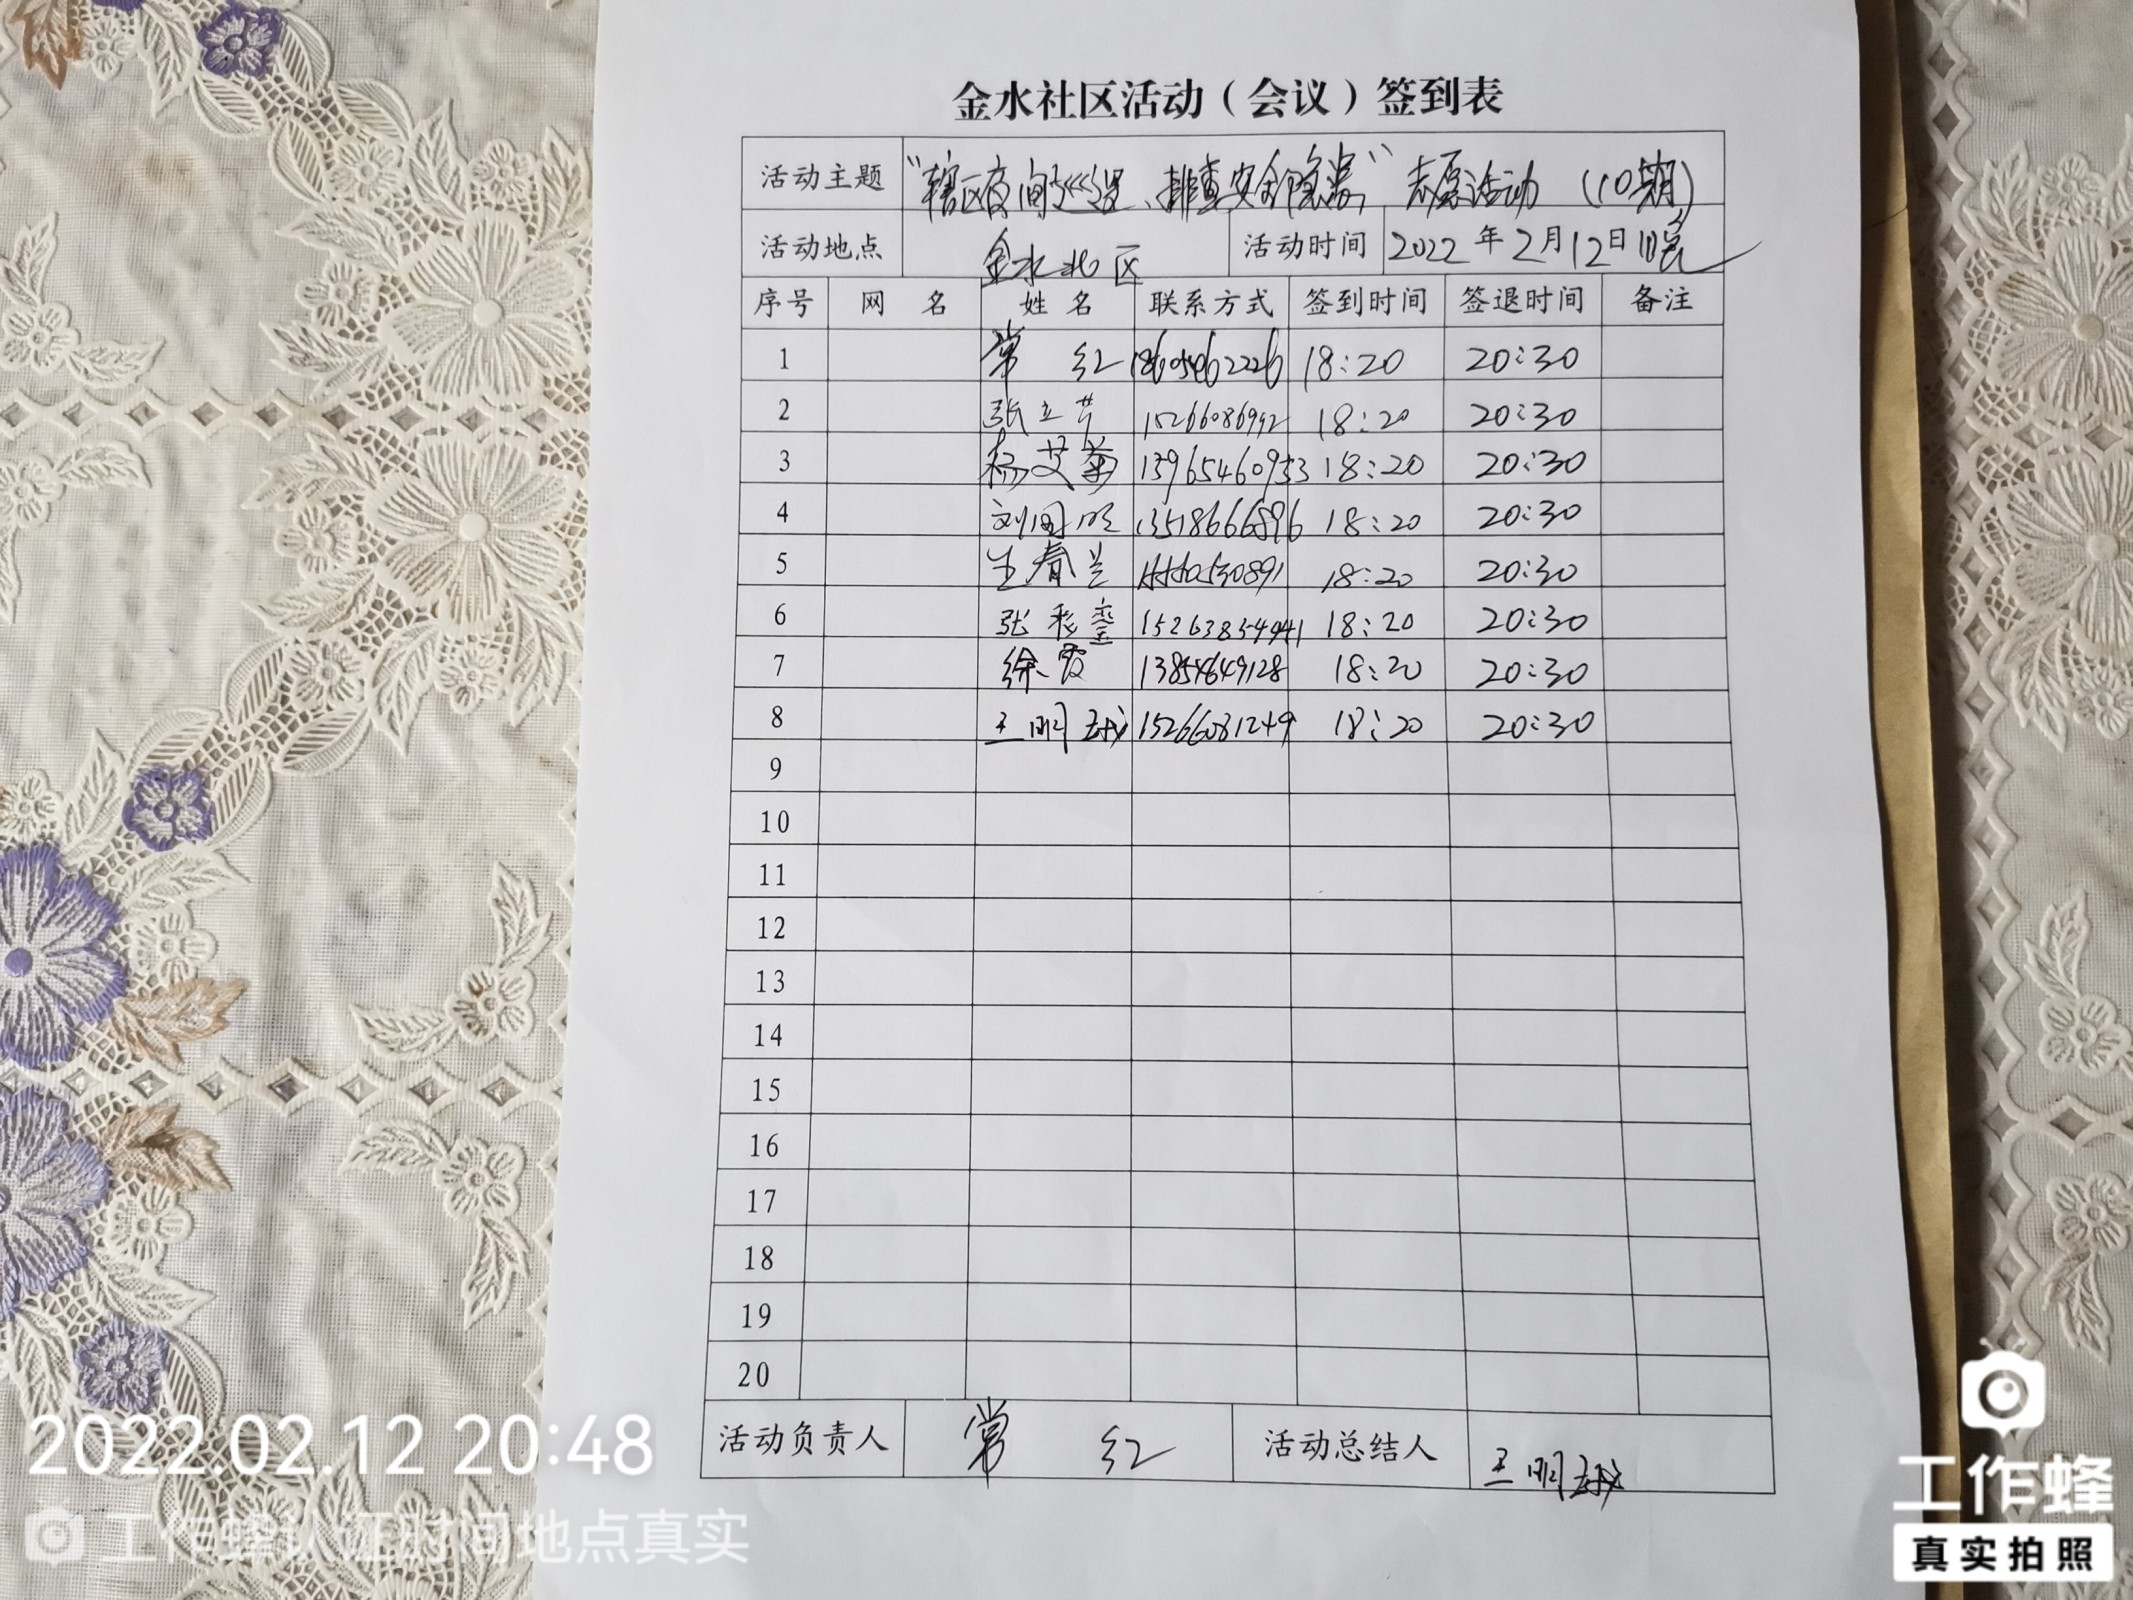 金水社区活动（会议）签到表
活动主题 “辖区夜间巡逻、排查安全隐患” 志愿活动（10期）
活动地点 金水北区 活动时间 2022年2月12日晚
序号 网 名 姓 名 联系方式 签到时间 签退时间 备注
1 常 红 18:20 20:30
2 张立芹 15266086992 18:20 20:30
3 杨艾菊 13965460953 18:20 20:30
4 刘 明 13518666896 18:20 20:30
5 王春兰 18:20 20:30
6 张 15263854941 18:20 20:30
7 徐霞 13854649128 18:20 20:30
8 王明 15266081249 18:20 20:30
9
10
11
12
13
14
15
16
17
18
19
20
活动负责人 常 红 活动总结人 王明
2022.02.12 20:48
工作蜂认证时间地点真实
工作蜂
真实拍照